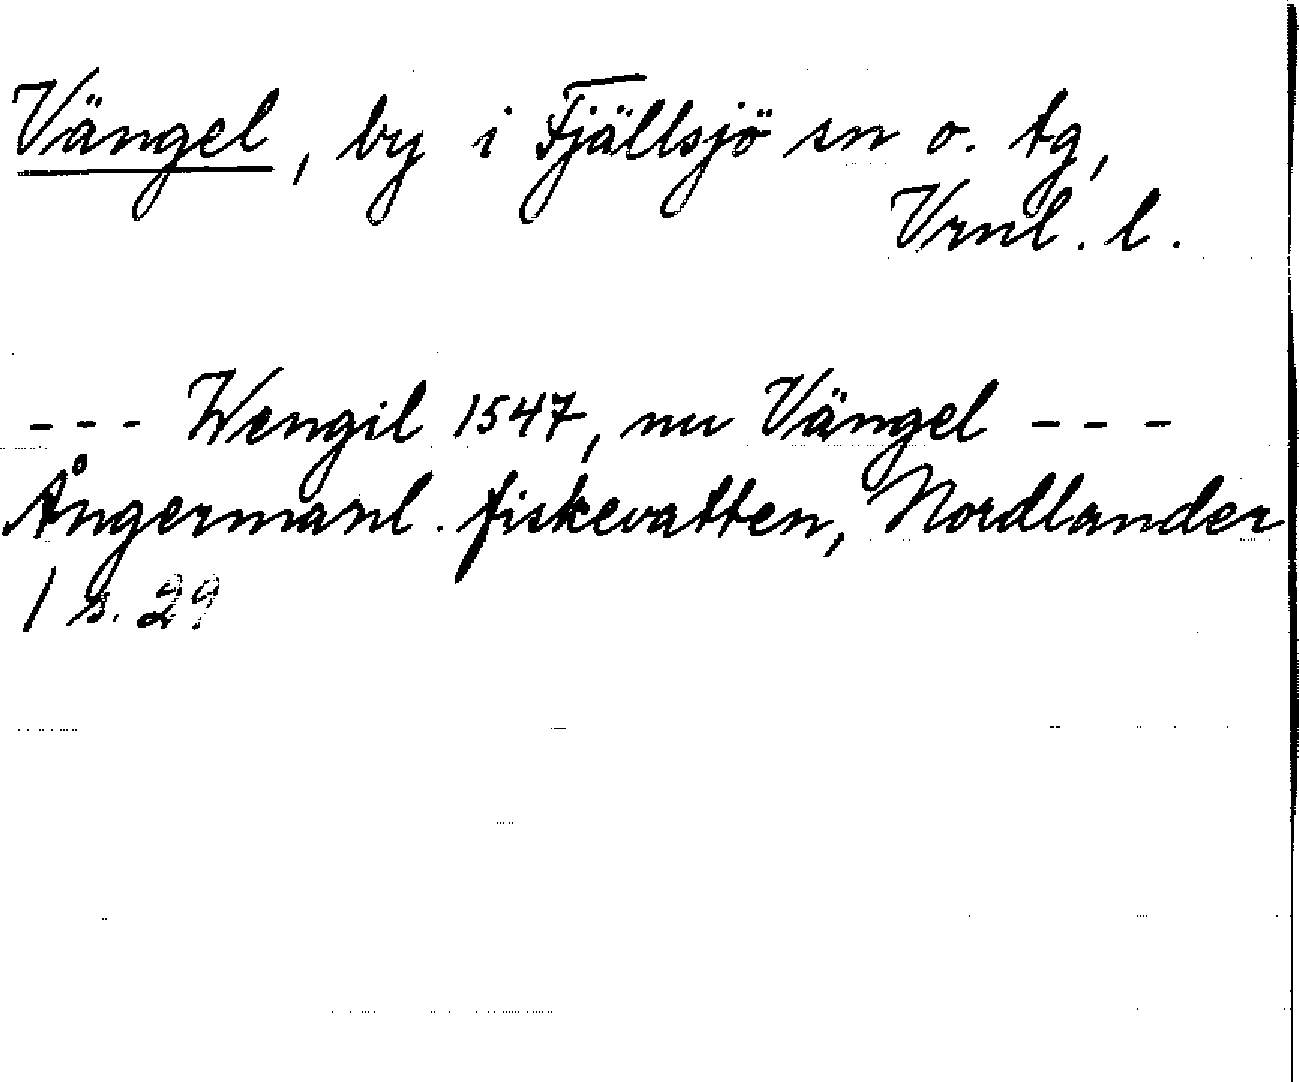 Vängel, by i Fjällsjö sn o. tg,
Vrnl. l.
--- Wengil 1547, nu Vängel ---
Ångermanl. fiskevatten, Nordlander
1 s. 29